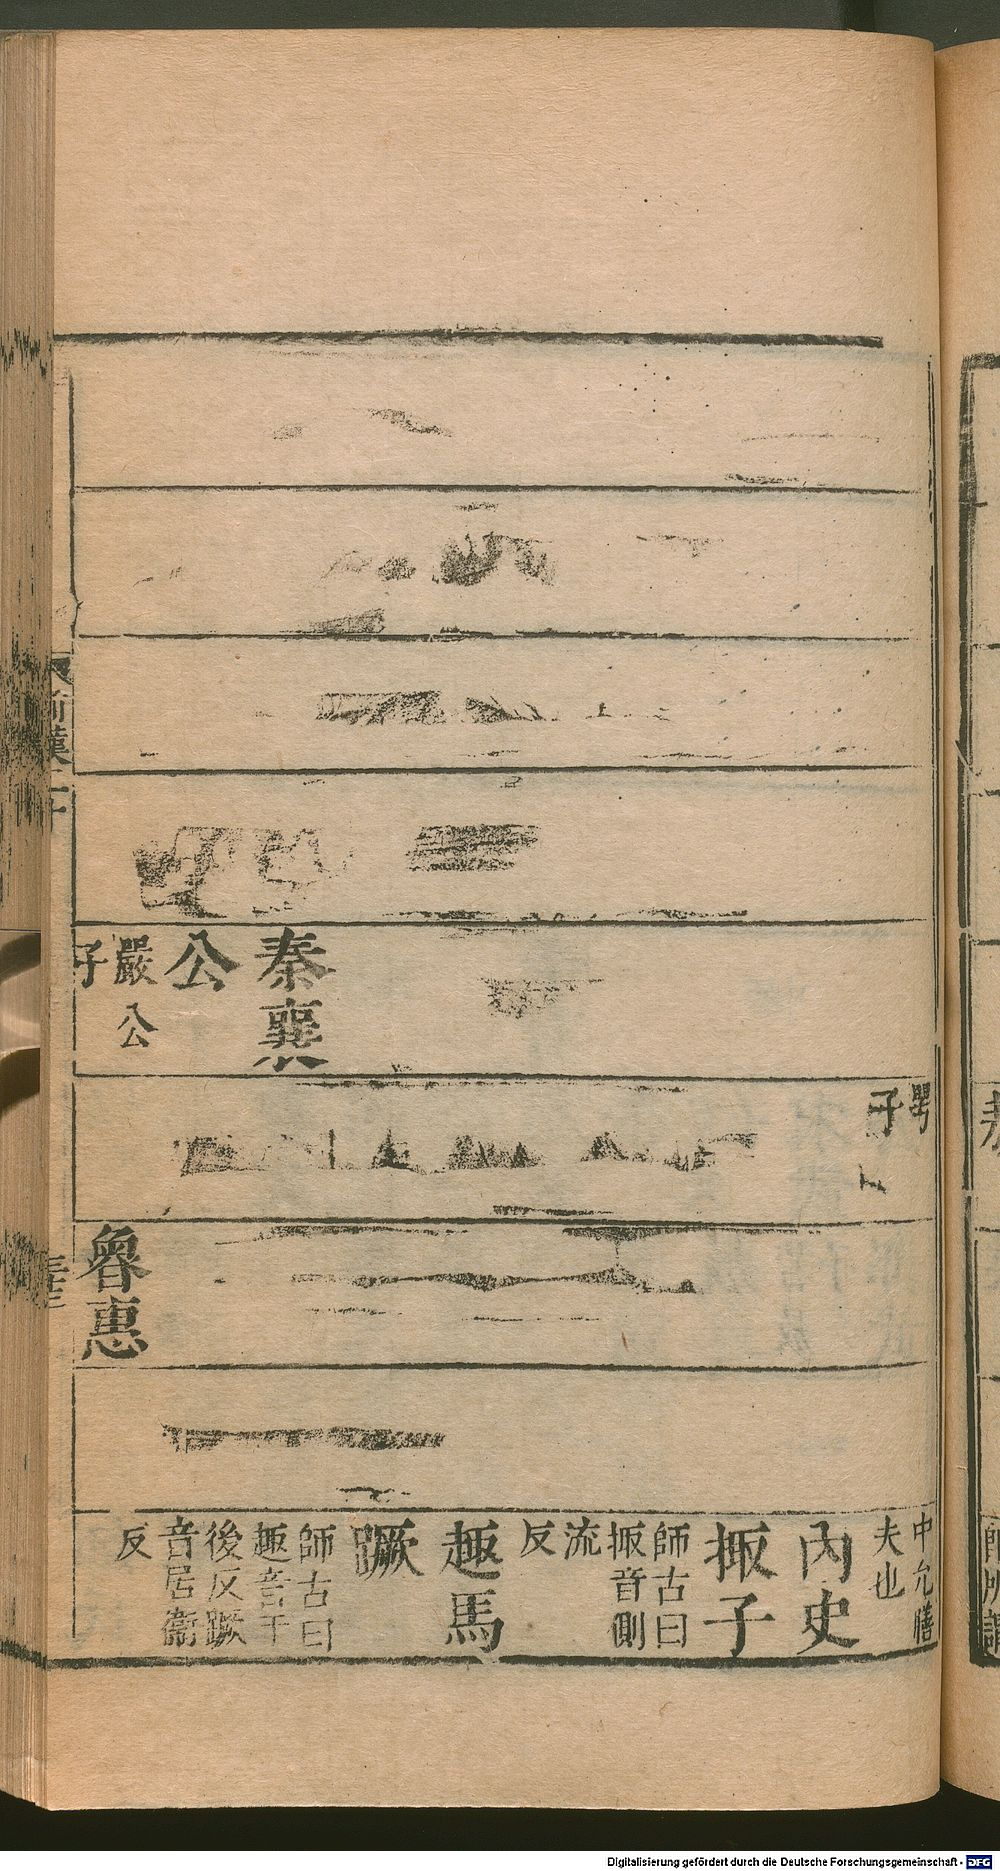 秦襄
公
嚴公
子
子
魯惠
中允膳
夫也
內史
掫子
師古曰
掫音側
流
反
趣馬
蹶
師古曰
趣音千
後反蹶
音居衞
反
前漢二十
Digitalisierung gefördert durch die Deutsche Forschungsgemeinschaft - DFG